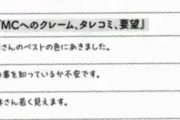 「MCへのクレーム、タレコミ、要望」
さんのベストの色にあきました。
事を知っているか不安です。
さん若く見えます。